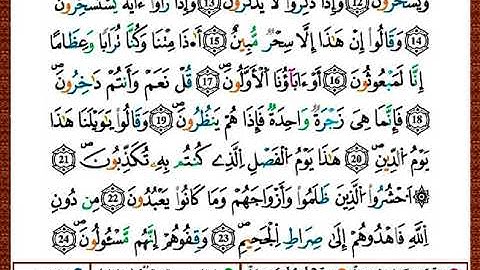 وَيَسْخَرُونَ ۝١٢ وَإِذَا ذُكِّرُوا۟ لَا يَذْكُرُونَ ۝١٣ وَإِذَا رَأَوْا۟ ءَايَةً يَسْتَسْخِرُونَ
۝١٤ وَقَالُوٓا۟ إِنْ هَٰذَآ إِلَّا سِحْرٌ مُّبِينٌ ۝١٥ أَءِذَا مِتْنَا وَكُنَّا تُرَابًا وَعِظَٰمًا
إِنَّا لَمَبْعُوثُونَ ۝١٦ أَوَءَابَآؤُنَا ٱلْأَوَّلُونَ ۝١٧ قُلْ نَعَمْ وَأَنتُمْ دَٰخِرُونَ
۝١٨ فَإِنَّمَا هِىَ زَجْرَةٌ وَٰحِدَةٌ فَإِذَا هُمْ يَنظُرُونَ ۝١٩ وَقَالُوا۟ يَٰوَيْلَنَا هَٰذَا
يَوْمُ ٱلدِّينِ ۝٢٠ هَٰذَا يَوْمُ ٱلْفَصْلِ ٱلَّذِى كُنتُم بِهِۦ تُكَذِّبُونَ ۝٢١
۞ ٱحْشُرُوا۟ ٱلَّذِينَ ظَلَمُوا۟ وَأَزْوَٰجَهُمْ وَمَا كَانُوا۟ يَعْبُدُونَ ۝٢٢ مِن دُونِ
ٱللَّهِ فَٱهْدُوهُمْ إِلَىٰ صِرَٰطِ ٱلْجَحِيمِ ۝٢٣ وَقِفُوهُمْ إِنَّهُم مَّسْـُٔولُونَ ۝٢٤